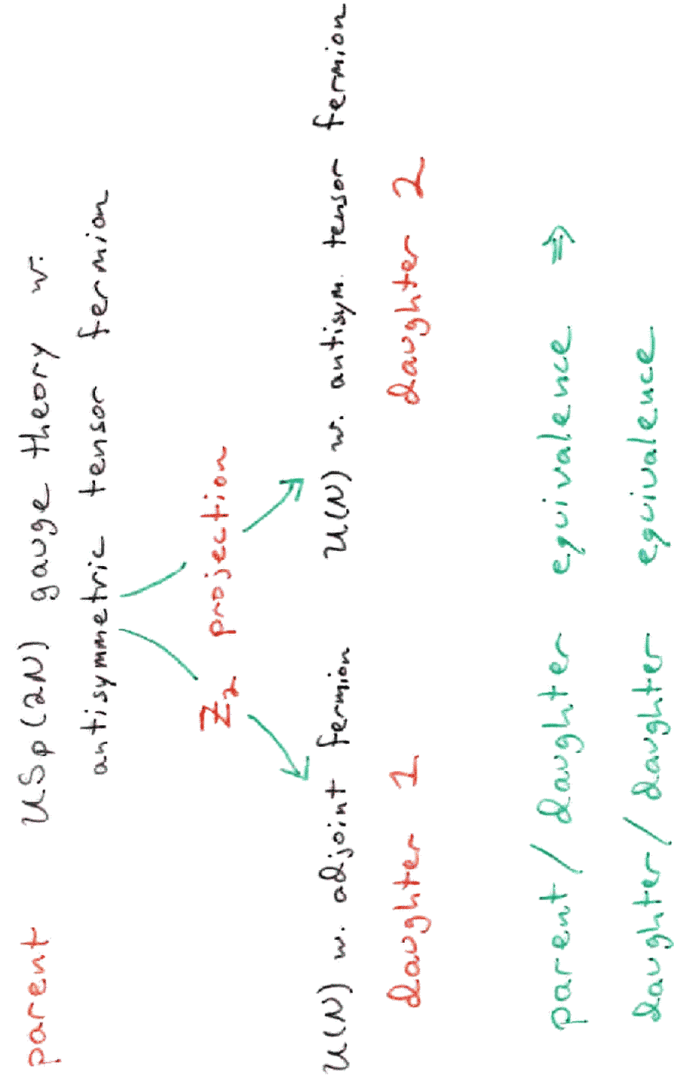 parent USp(2N) gauge theory w.
antisymmetric tensor fermion
Z₂ projection
U(N) w. adjoint fermion U(N) w. antisym. tensor fermion
daughter 1 daughter 2
parent / daughter equivalence ⇒
daughter / daughter equivalence